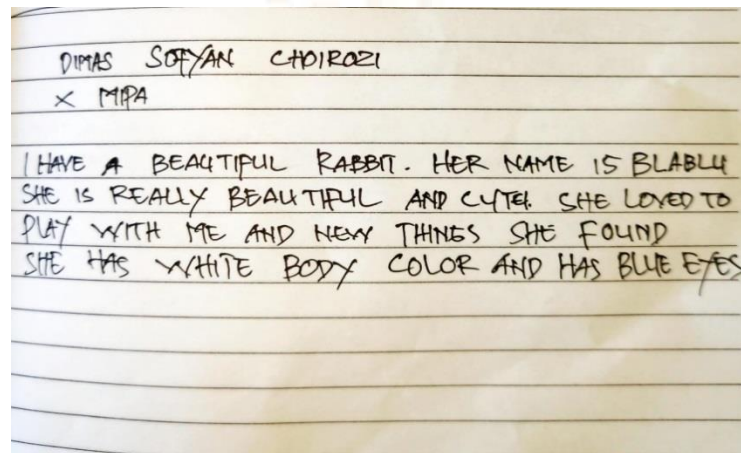 DIMAS SOFYAN CHOIROZI
X MIPA
I HAVE A BEAUTIFUL RABBIT. HER NAME IS BLABLU
SHE IS REALLY BEAUTIFUL AND CUTE. SHE LOVED TO
PLAY WITH ME AND NEW THINGS SHE FOUND
SHE HAS WHITE BODY COLOR AND HAS BLUE EYES